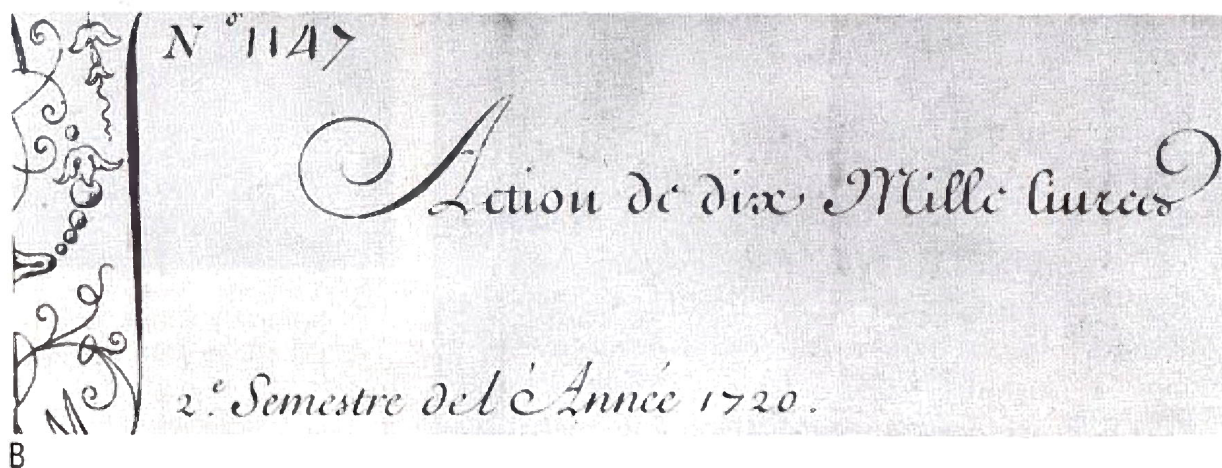 N° 1147
Action de dix Mille livres
2.e Semestre de l'Année 1720.
B